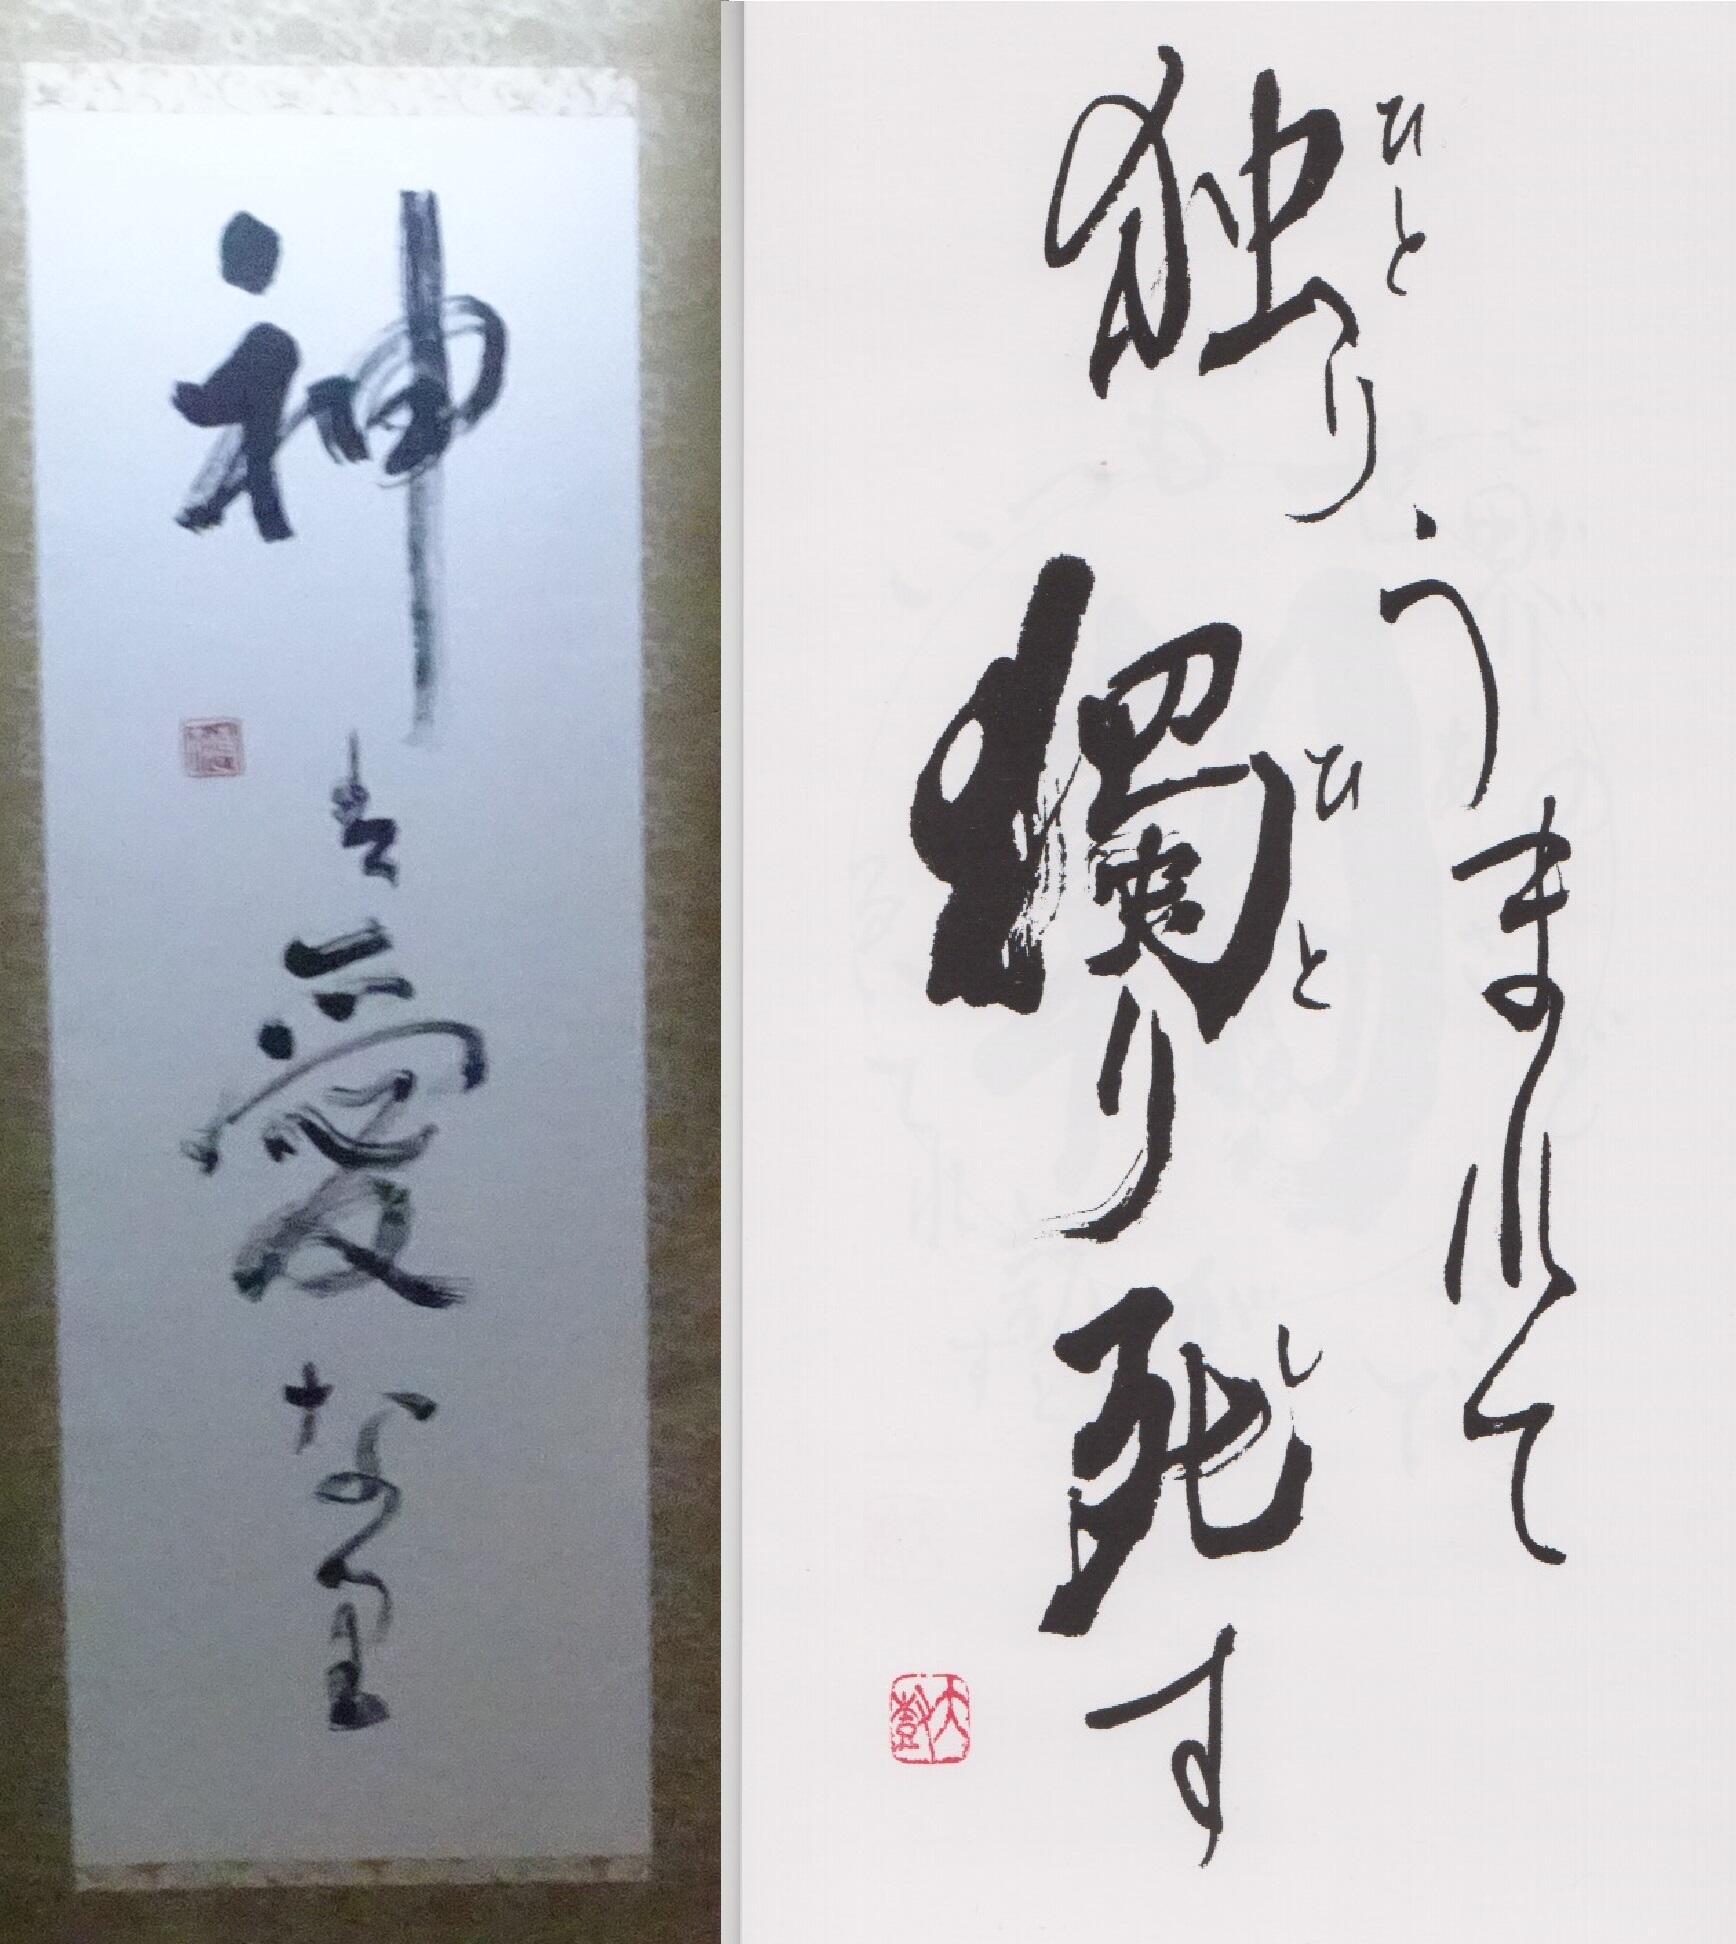 神は愛なり
ひと
独りうまれて
ひと し
獨り死す